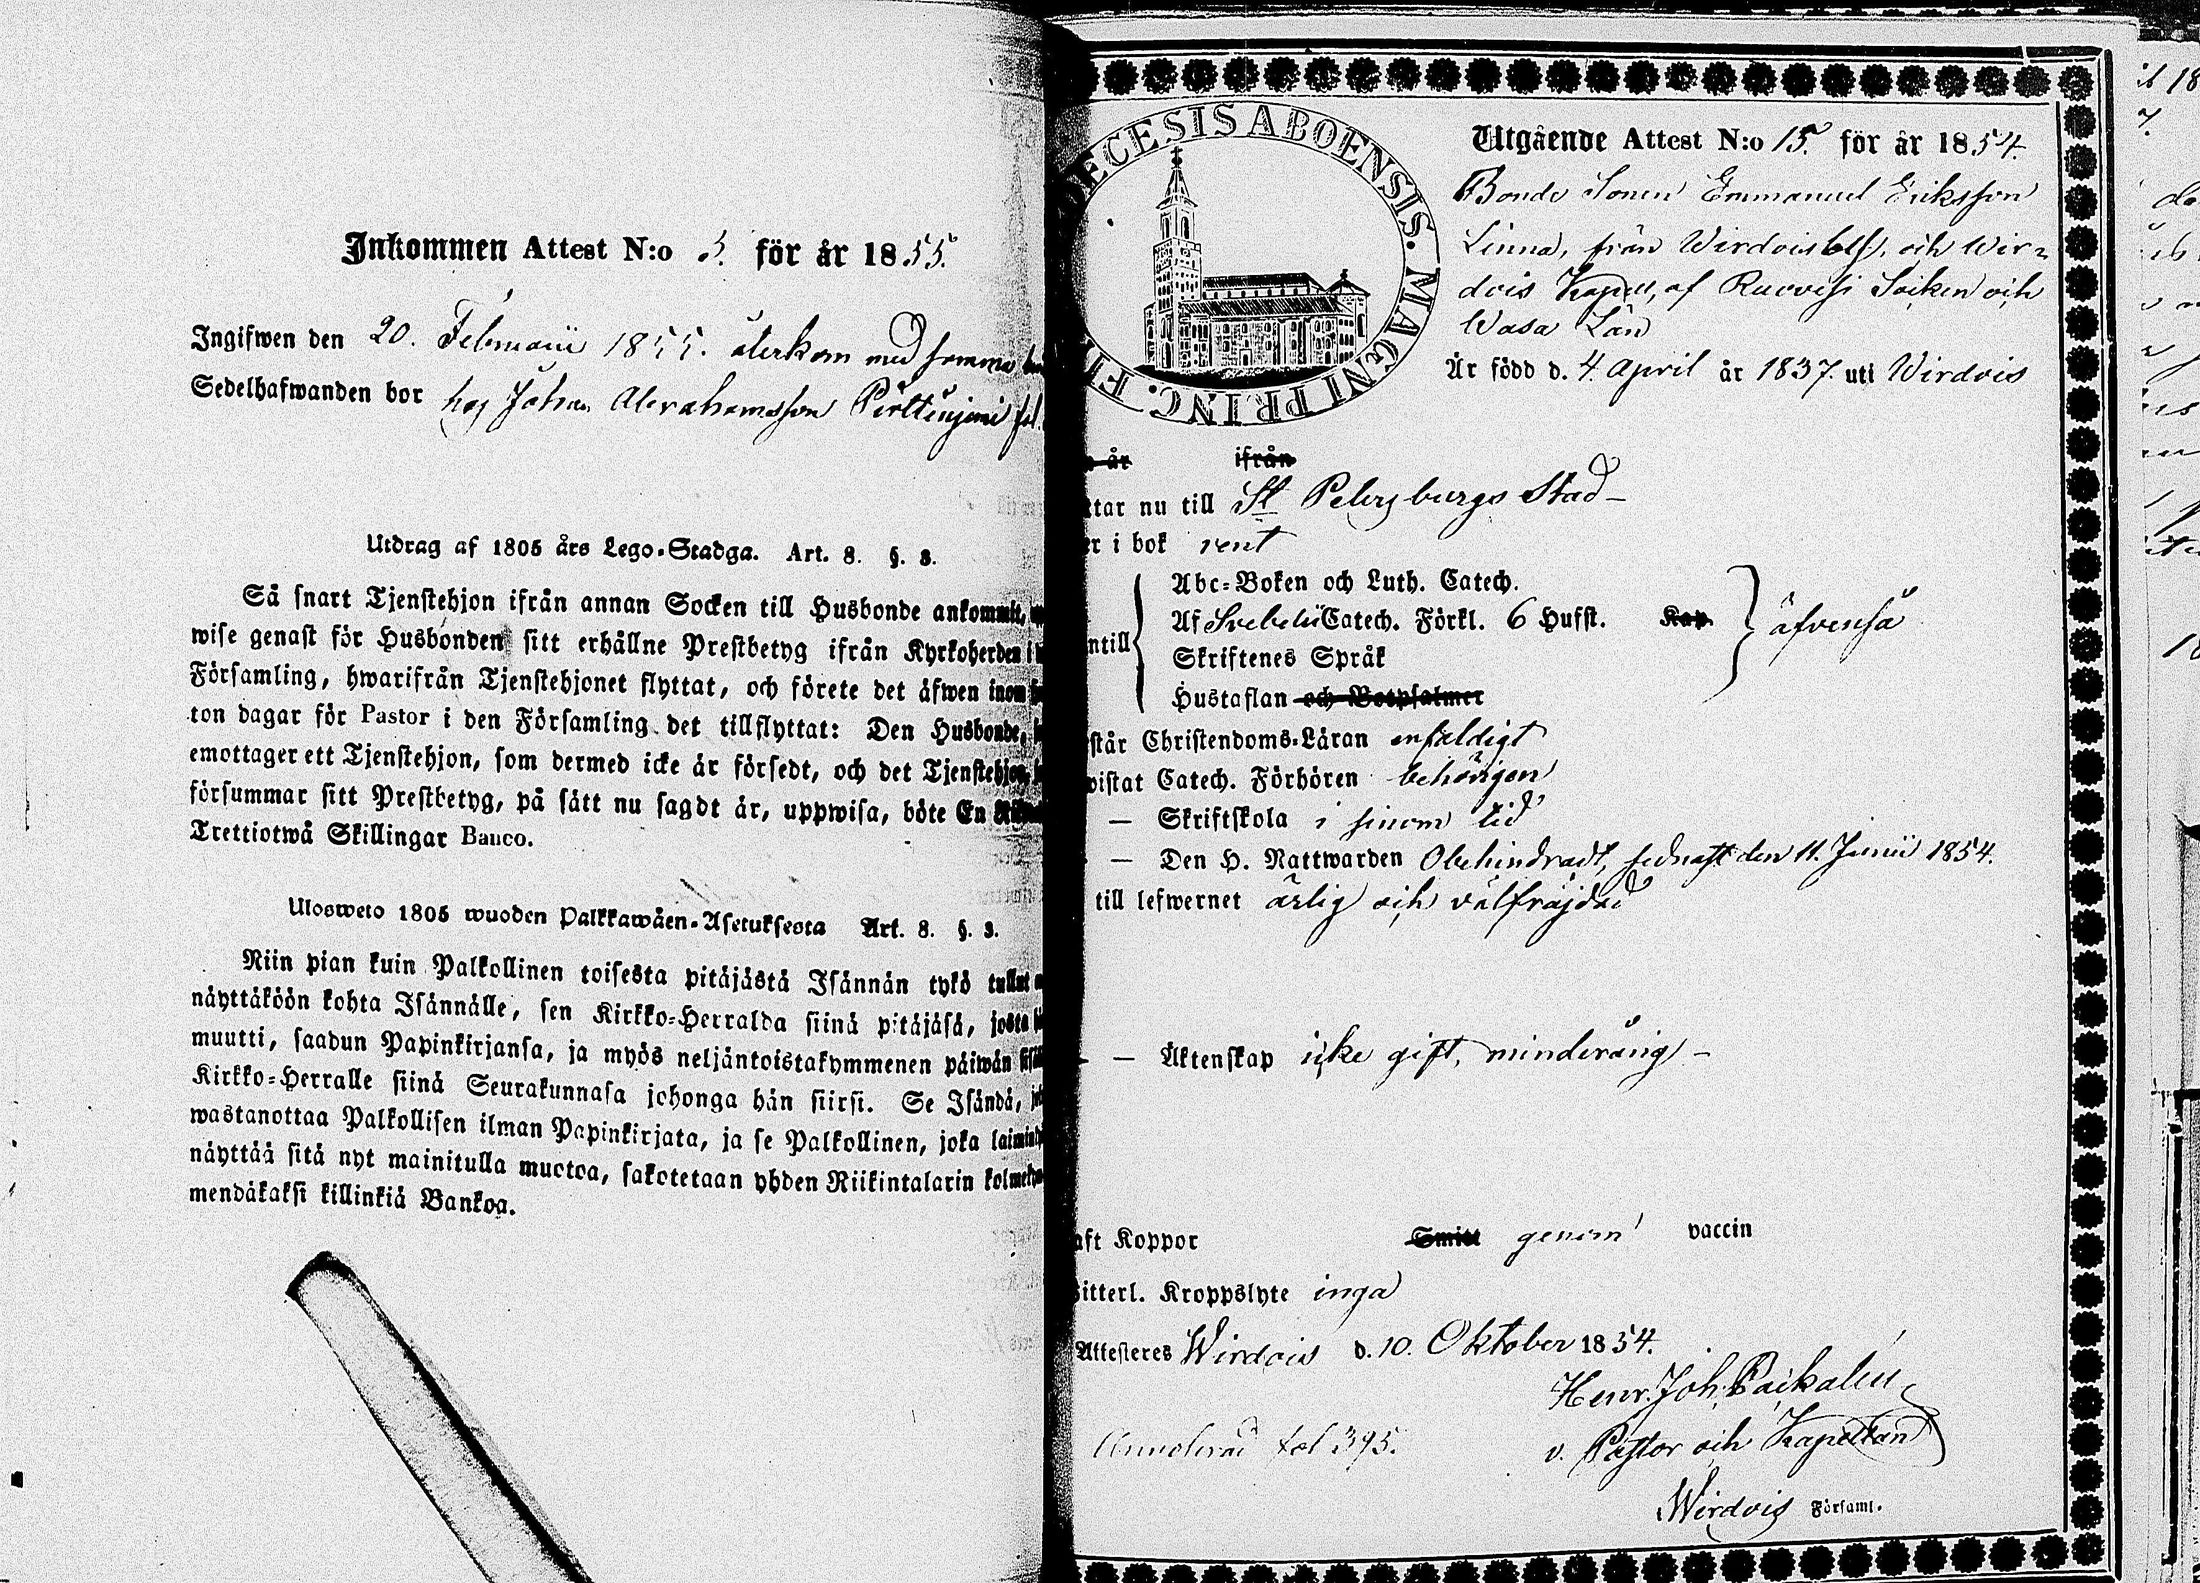 Inkommen Attest N:o 5. för år 1855.
Ingifwen den 20. Februarii 1855. återkom med samma
Sedelhafwanden bor hos Johan Abrahamsson Perttujeni fol.
Utdrag af 1805 års Lego-Stadga. Art. 8. §. 3.
Så snart Tjenstehjon ifrån annan Socken till Husbonde ankommit,
wise genast för Husbonden sitt erhållne Prestbetyg ifrån Kyrkoherden i
Församling, hwarifrån Tjenstehjonet flyttat, och förete det äfwen inom
ton dagar för Pastor i den Församling det tillflyttat: Den Husbonde,
emottager ett Tjenstehjon, som dermed icke är försedt, och det Tjenstehjon,
försummar sitt Prestbetyg, på sätt nu sagdt är, uppwisa, böte En
Trettiotwå Skillingar Banco.
Ulosweto 1805 wuoden Palkkawäen-Asetuksesta Art. 8. §. 3.
Niin pian kuin Palkollinen toisesta pitäjästä Isännän tykö tullut
näyttäköön kohta Isännälle, sen Kirkko-Herralda siinä pitäjäsä, josta
muutti, saadun Papinkirjansa, ja myös neljäntoistakymmenen päiwän
Kirkko-Herralle siinä Seurakunnasa johonga hän siirsi. Se Isändä,
wastanottaa Palkollisen ilman Papinkirjata, ja se Palkollinen, joka
näyttää sitä nyt mainitulla muotoa, sakotetaan yhden Riikintalarin
mendäkaksi killinkiä Bankoa.
DECESIS ABOENSIS. MAGNI PRINC. F
Utgående Attest N:o 15. för år 1854.
Bonde Sonen Emmanuel Eriksson
Linna, från Wirdois by, och Wir-
dois Kapell, af Ruovesi Socken och
Wasa Län
Är född d. 4. April år 1837. uti Wirdois
år ifrån
tar nu till St Petersburgs Stad –
er i bok rent
Abc-Boken och Luth. Catech.
Af Svebelii Catech. Förkl. 6 Hufst. Kap.
ntill
Skriftenes Språk
äfvenså
Hustaflan och Botpsalmer
står Christendoms-Läran enfaldigt
vistat Catech. Förhören behörigen
— Skriftskola i sinom tid
— Den H. Nattwarden Obehindradt, sednast den 11. Junii 1854.
till lefwernet ärlig och välfräjdad
— Äktenskap icke gift, minderårig –
aft Koppor Smitt genom vaccin
itterl. Kroppslyte inga
Attesteres Wirdois d. 10. Oktober 1854.
Henr. Joh. Baikalén
v. Pastor och Kapellan
395.
Wirdois Församl.